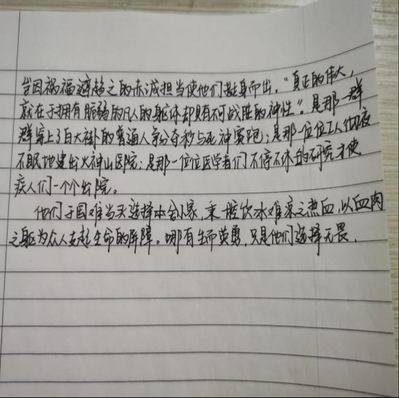 岂因祸福避趋之的赤诚担当使他们挺身而出，“真正的伟大，
就在于拥有脆弱的凡人的躯体却具有不可战胜的神性”。是那一群
群穿上了白大褂的普通人争分夺秒与死神赛跑；是那一位位工人彻夜
不眠地建出火神山医院；是那一位位医学者们不停不休的研究才使
病人们一个个出院。
他们于国难当头选择本舍小家，秉一腔饮冰难凉之热血，以血肉
之躯为众人支起生命的屏障。哪有生而英勇，只是他们选择无畏.